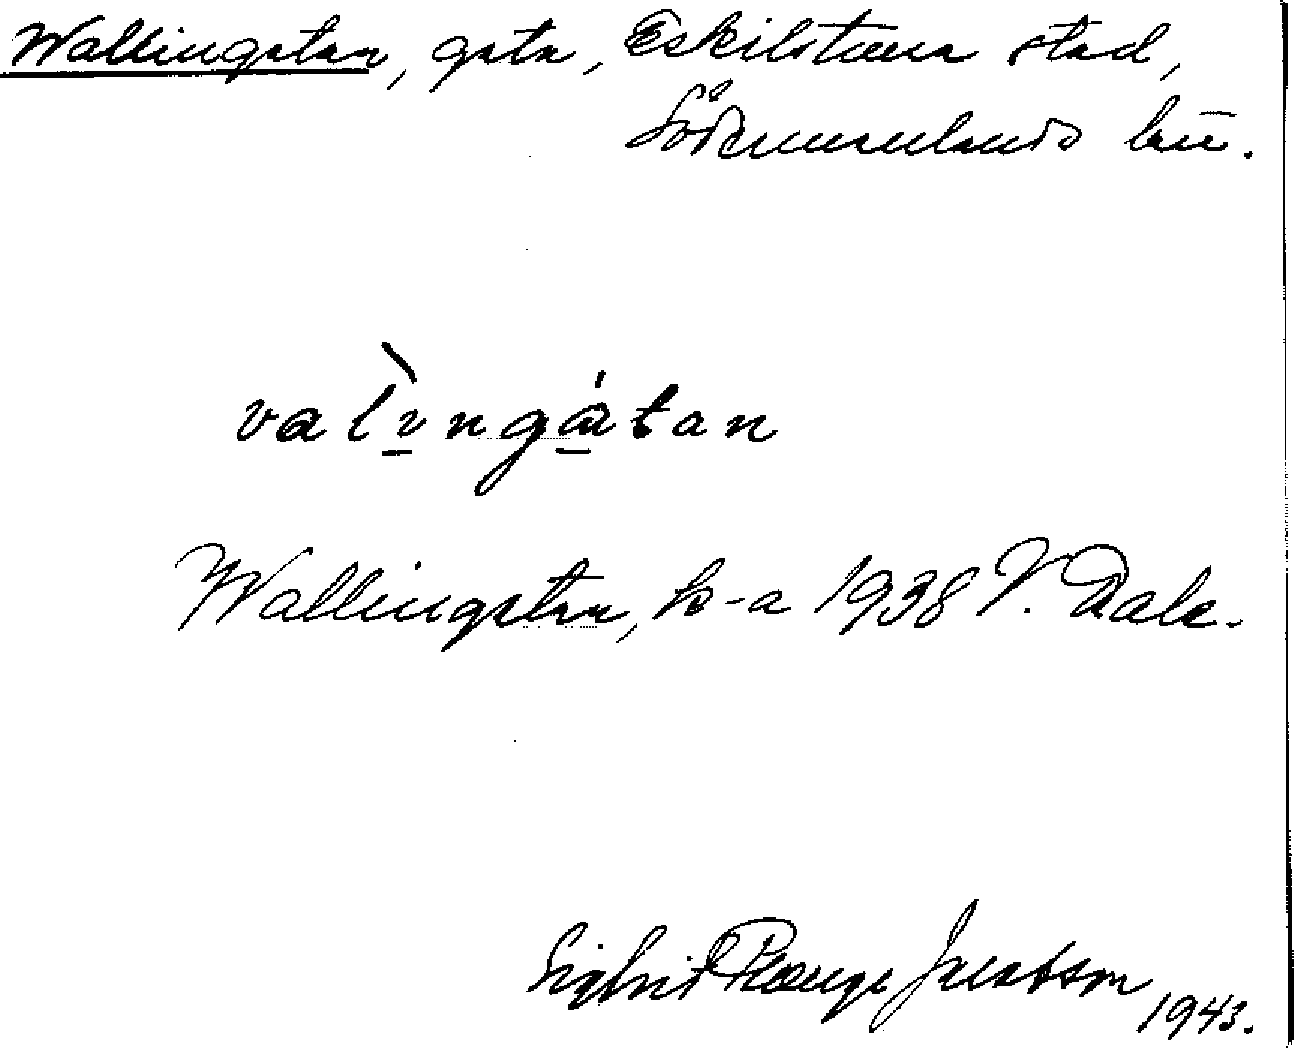 Wallingatan, gata, Eskilstuna stad,
Södermanlands län.
valìngátan
Wallingatan, k-a 1938 V. Dale.
Sigfrid Prenge Jacobson
1943.